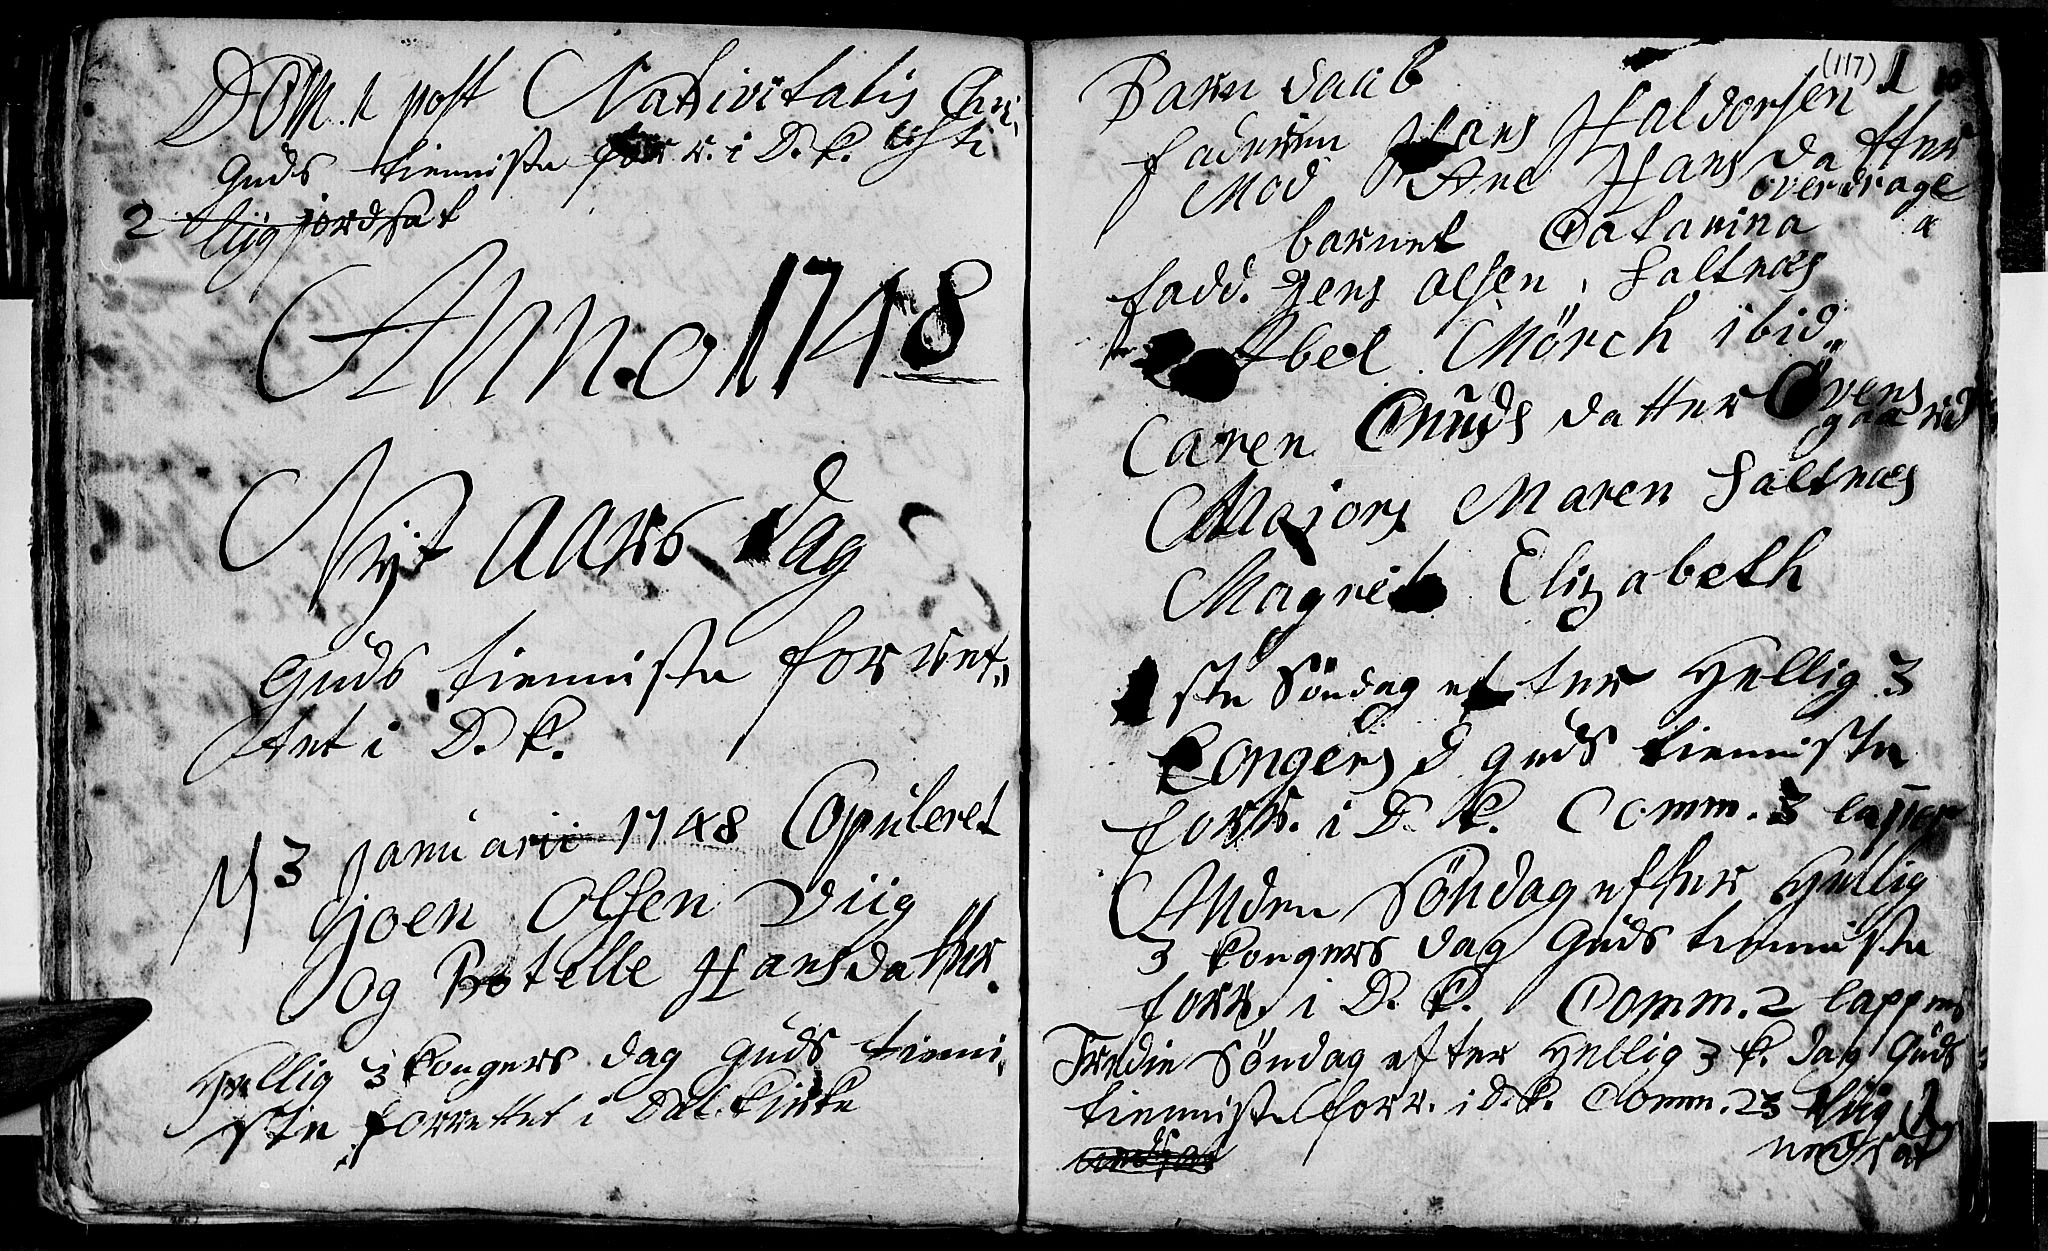 Dom. 1 post Nativitatis Chri
Guds tienniste forr. i D. k. sti
2 Liig jordsat
Anno 1748
Nyt Aars Dag
Guds tienniste forret„
tet i D. k.
3 Januarii 1748 Copuleret
Joen Olsen Viig
Og Botelle Hansdatter.
Hellig 3 kongers dag Guds tienni„
ste forrettet i Dal. kirke
(117)
Barn Daab 1
faderen Hans Haldorsen
Mod Ane Hans datter
overdrage
barnet Catarina
fadd. Jens Olsen, Saltnæs
Abel Mörch ibid„
Caren Cnuds datter Övens
gaard
Majors Maren Saltnæs
Magret Elizabeth
1 ste Söndag efter Hellig 3
Congers d guds tienniste
forr. i D. k. Comm. 3 lapper
Anden Söndag efter Hellig
3 kongers dag Guds tienniste
forr. i D. k. Comm. 2 lapper
Tredie Söndag efter Hellig 3 k. dag Guds
tienniste forr. i D. k. Comm. 23 Liig 1
nedsat